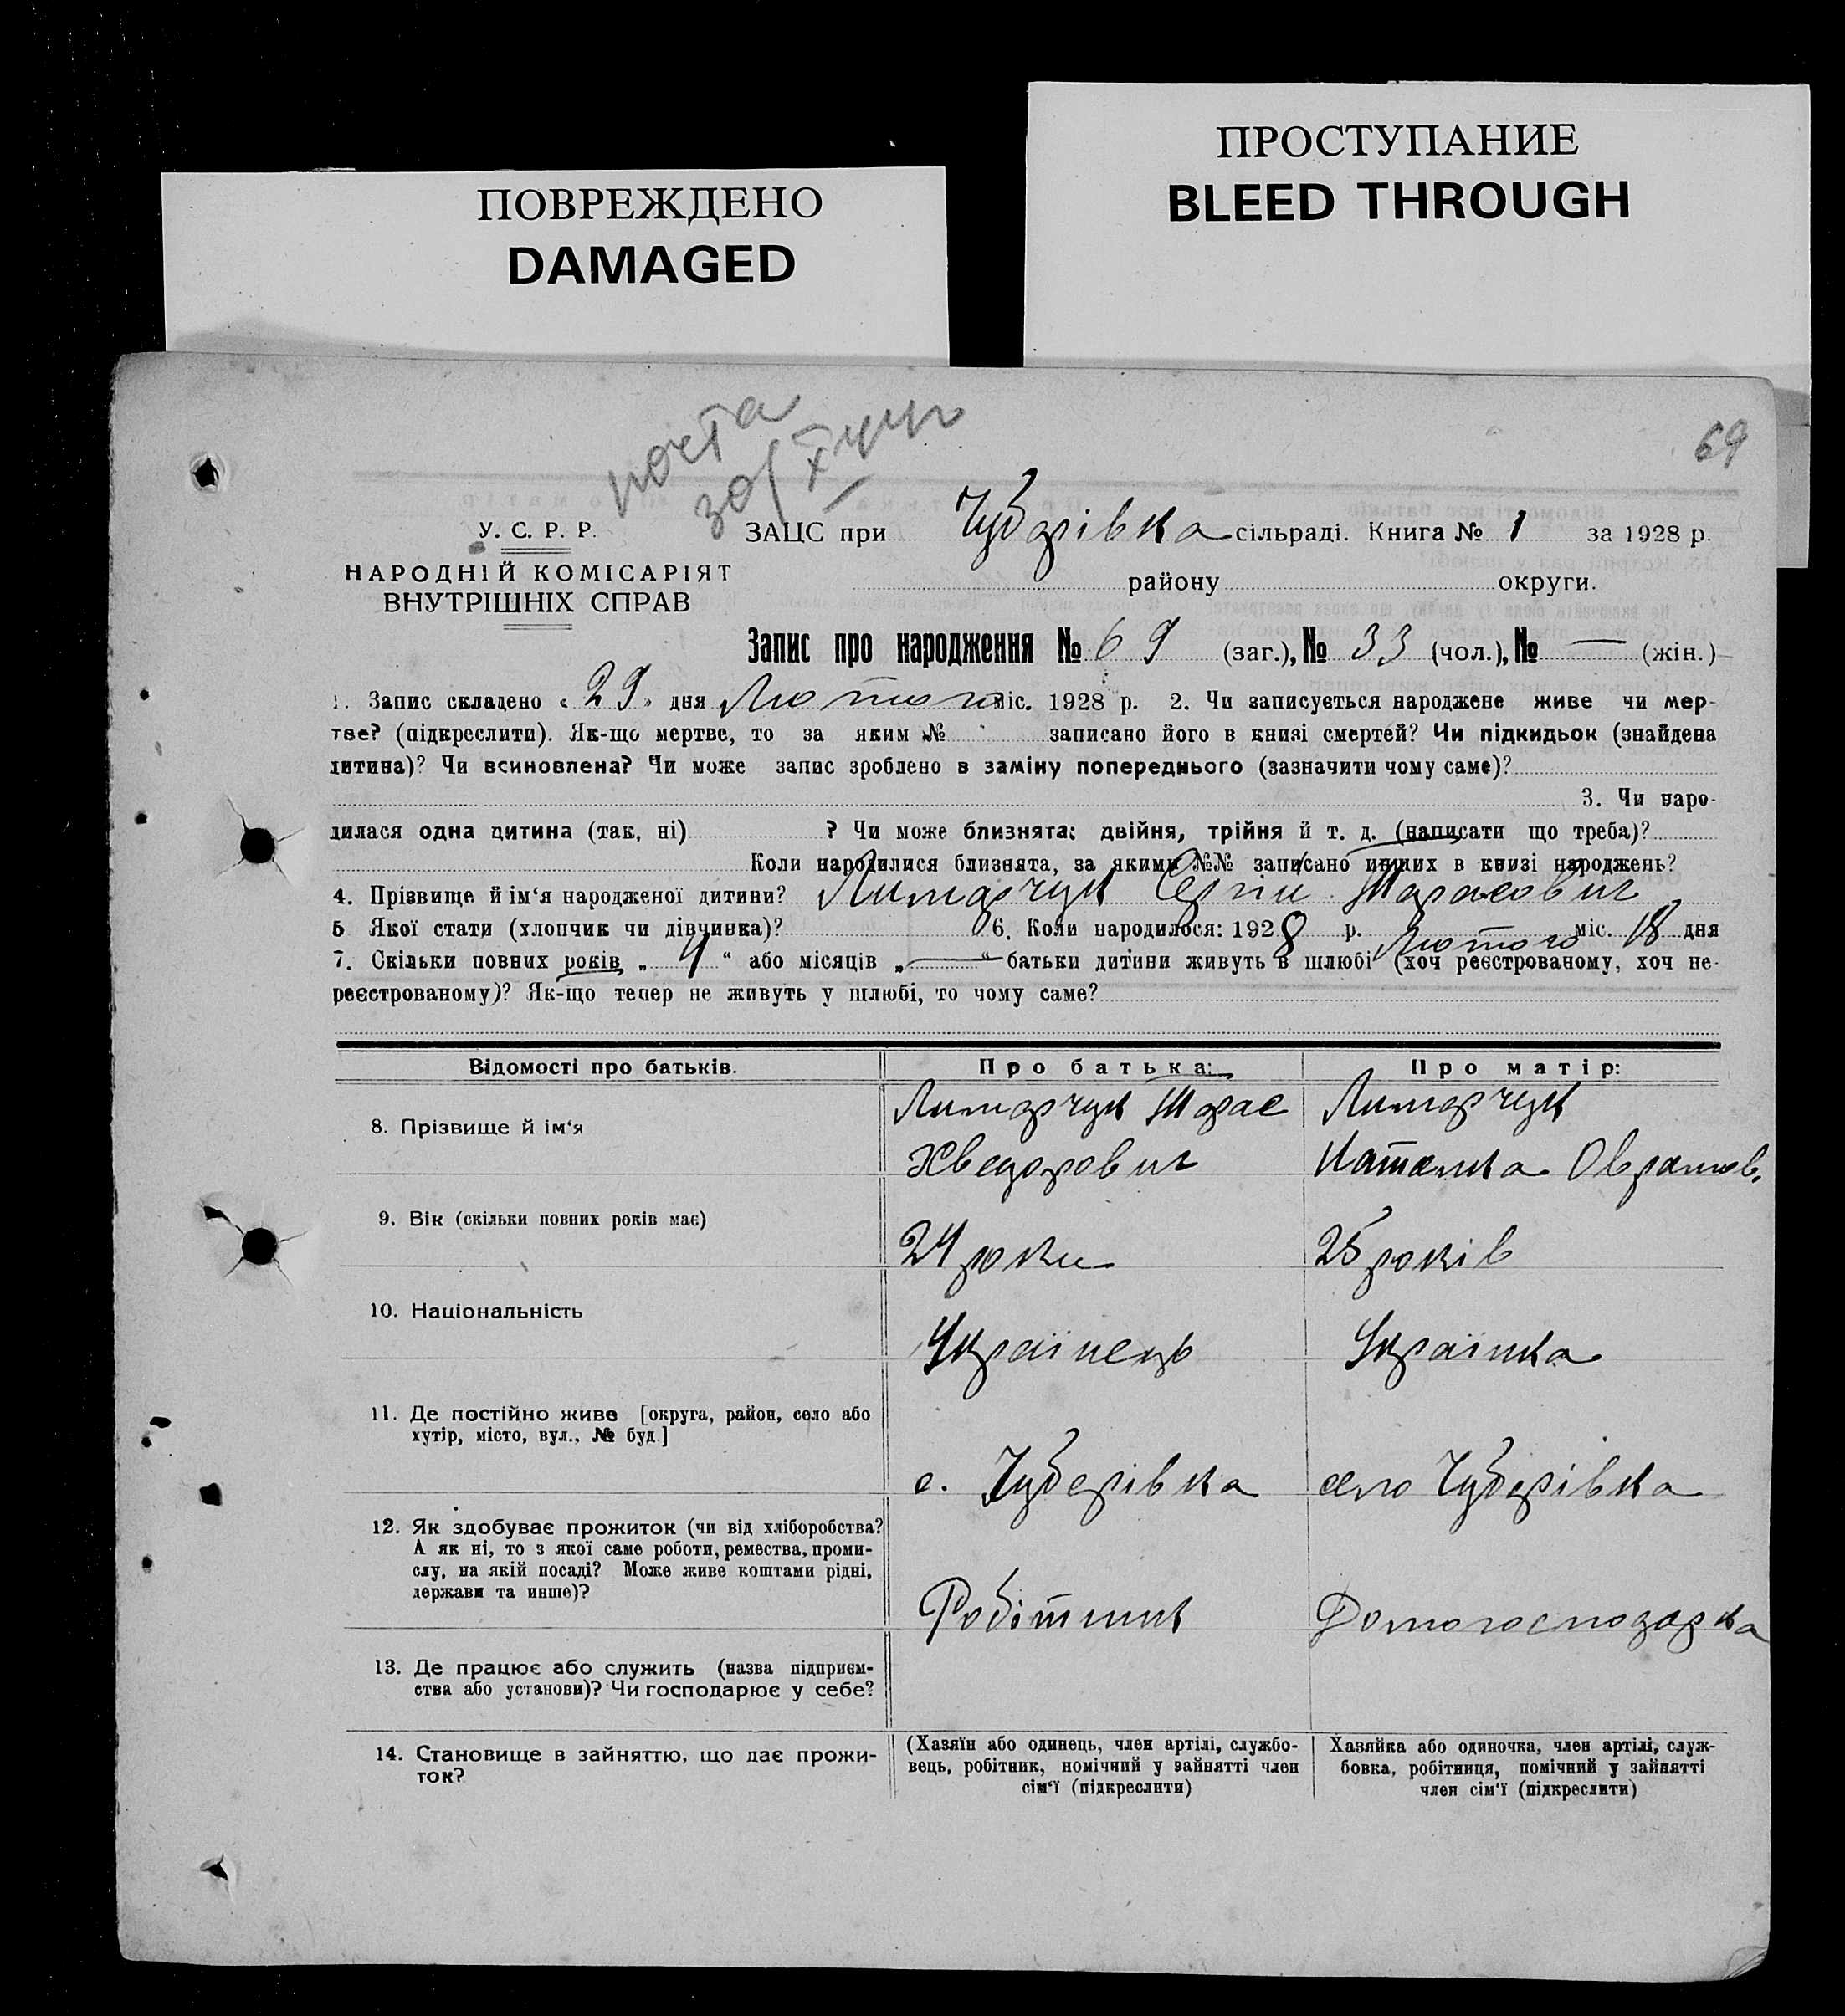 ПРОСТУПАНИЕ
BLEED THROUGH
ПОВРЕЖДЕНО
DAMAGED
69
У. С. Р. Р.
НАРОДНІЙ КОМІСАРІЯТ
ВНУТРІШНІХ СПРАВ
ЗАЦС при Чубарівка сільраді. Книга № 1 за 1928 р.
району округи.
Запис про народження № 69 (заг.), № 33 (чол.), № — (жін.)
1. Запис складено « 29 » дня Лютого міс. 1928 р. 2. Чи записується народжене живе чи мер-
тве? (підкреслити). Як-що мертве, то за яким № записано його в книзі смертей? Чи підкидьок (знайдена
дитина)? Чи всиновлена? Чи може запис зроблено в заміну попереднього (зазначити чому саме)?
3. Чи наро-
дилася одна дитина (так, ні) ? Чи може близнята: двійня, трійня й т. д. (написати що треба)?
Коли народилися близнята, за якими №№ записано инших в книзі народжень?
4. Прізвище й ім‘я народженої дитини? Лимарчук Сергій Тарасович
5 Якої стати (хлопчик чи дівчинка)? 6. Коли народилося: 1928 р. Лютого міс. 18 дня
7. Скільки повних років „ 4 “ або місяців „ — “ батьки дитини живуть в шлюбі (хоч реєстрованому, хоч не-
реєстрованому)? Як-що тепер не живуть у шлюбі, то чому саме?
Відомості про батьків. Про батька: Про матір:
8. Прізвище й ім‘я Лимарчук Тарас Лимарчук
Хведорович Наталка Оврамов.
9. Вік (скільки повних років має) 24 роки 25 років
10. Національність Українець Українка
11. Де постійно живе [округа, район, село або
хутір, місто, вул., № буд.] с. Чубарівка село Чубарівка
12. Як здобуває прожиток (чи від хліборобства?
А як ні, то з якої саме роботи, ремества, проми-
слу, на якій посаді? Може живе коштами рідні,
держави та инше)? Робітник Домогосподарка
13. Де працює або служить (назва підприєм-
ства або установи)? Чи господарює у себе?
14. Становище в зайняттю, що дає прожи-
ток?
(Хазяїн або одинець, член артілі, службо-
вець, робітник, помічний у зайнятті член
сім‘ї (підкреслити)
Хазяйка або одиночка, член артілі, служ-
бовка, робітниця, помічний у зайнятті
член сім‘ї (підкреслити)